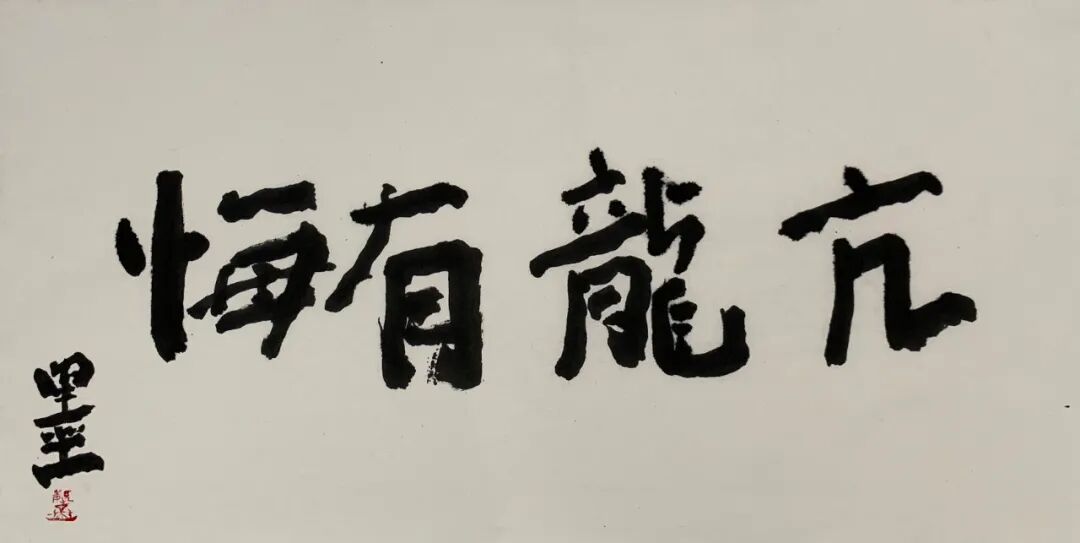 亢龍有悔
墨